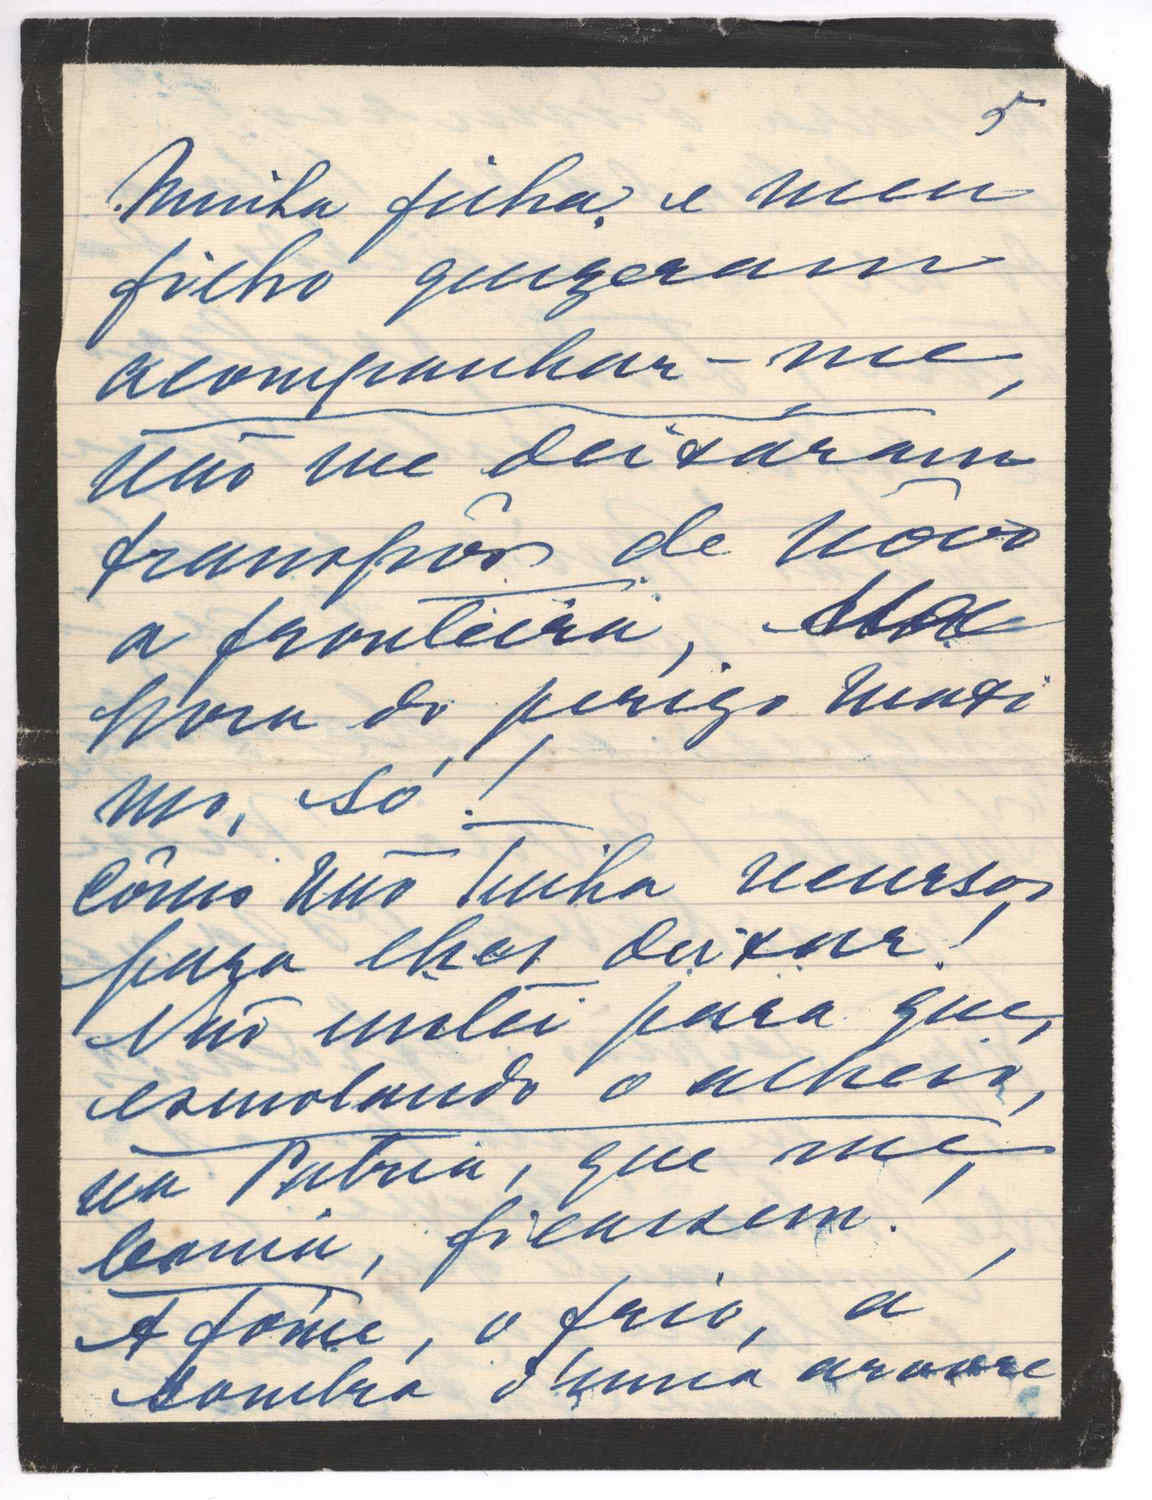 5
Minha filha, e meu
filho quizeram
acompanhar-me,
não me deixáram
transpôr de nôvo
a fronteira, na
hora do perigo maxi
mo, só!
Cômo não tinha recursos
para lhes deixar!
Não insteí para que,
esmolando o alheio,
na Patria, que me,
bania, ficassem!
A fôme, o frio, a
sombra d'uma arvore